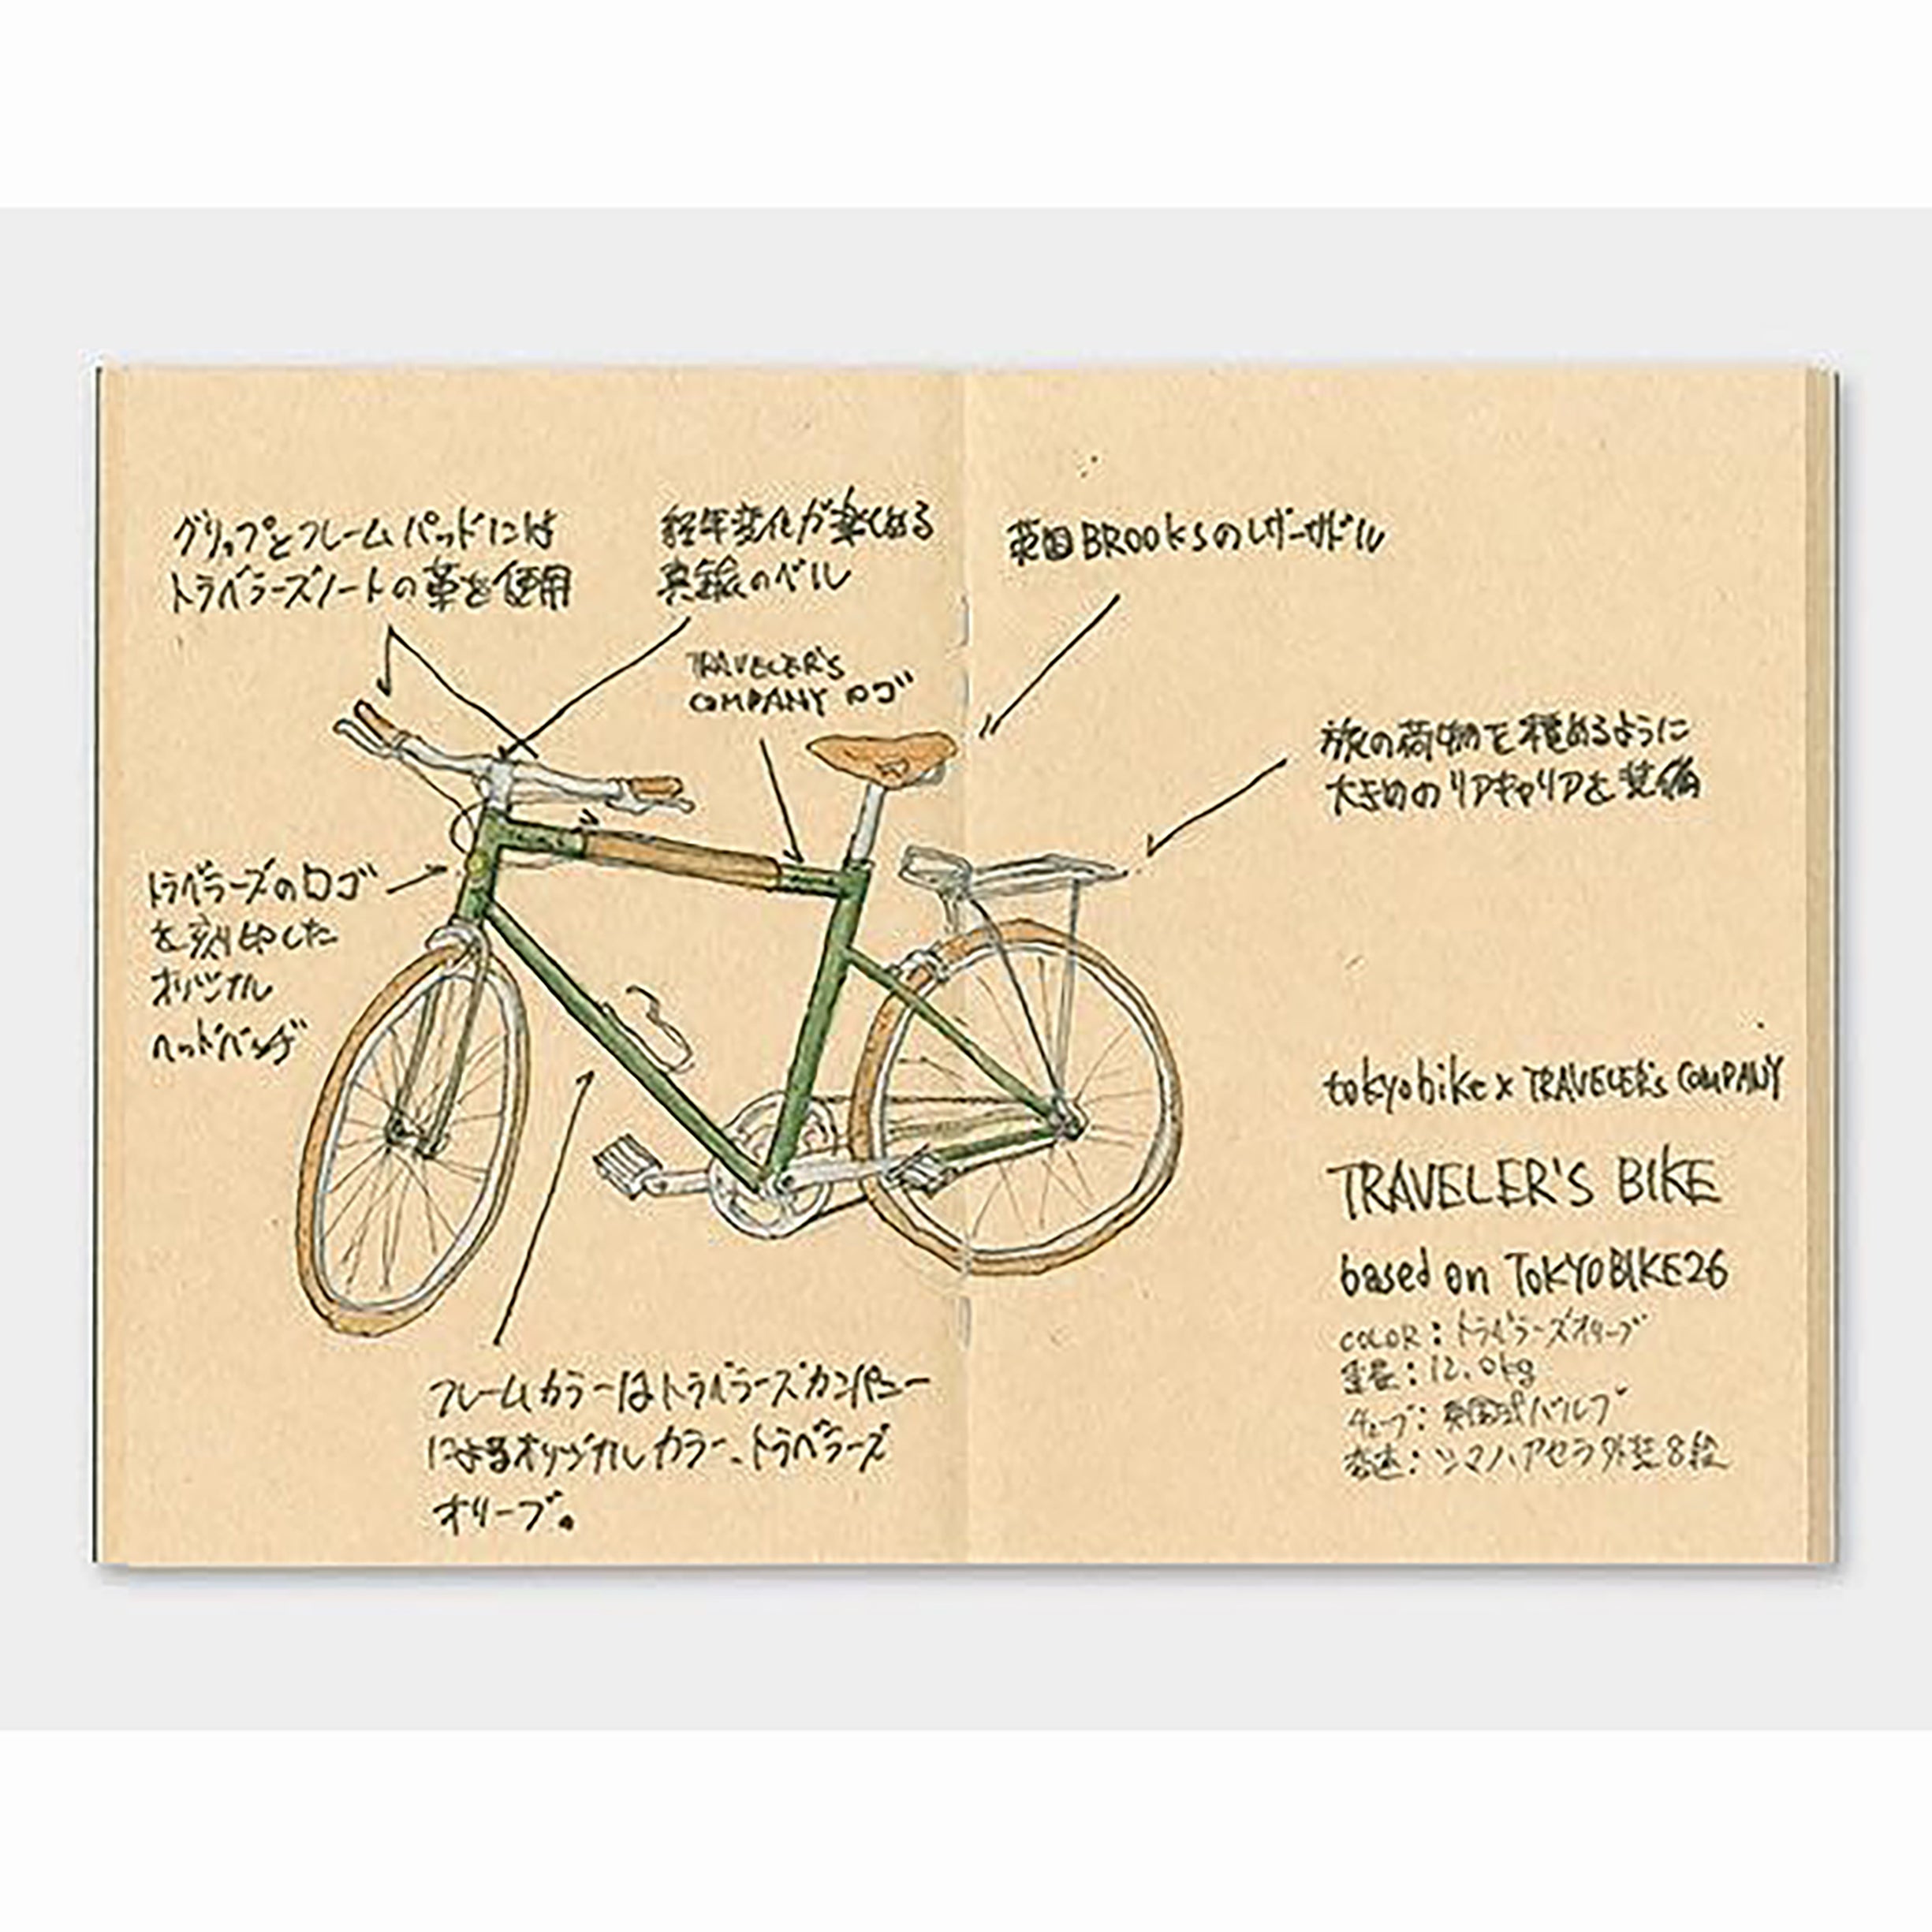 グリップとフレームパッドには
トラベラーズノートの革を使用
経年変化が楽しめる
真鍮のベル
TRAVELER'S
COMPANY ロゴ
英国BROOKSのレザーサドル
旅の荷物を積めるように
大きめのリアキャリアを装備
トラベラーズのロゴ
を刻印した
オリジナル
ヘッドバッヂ
フレームカラーはトラベラーズカンパニー
によるオリジナルカラー、トラベラーズ
オリーブ。
tokyobike x TRAVELER's COMPANY
TRAVELER'S BIKE
based on TOKYOBIKE26
COLOR：トラベラーズオリーブ
重量：12.0kg
チューブ：英国式バルブ
変速：シマノアセラ外装8段